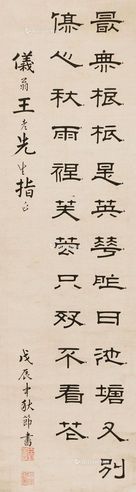 最無根柢是英華昨日池塘又別
心秋雨裡芙蓉只好不看花
儀翁王老先生指正
戊辰中秋節書